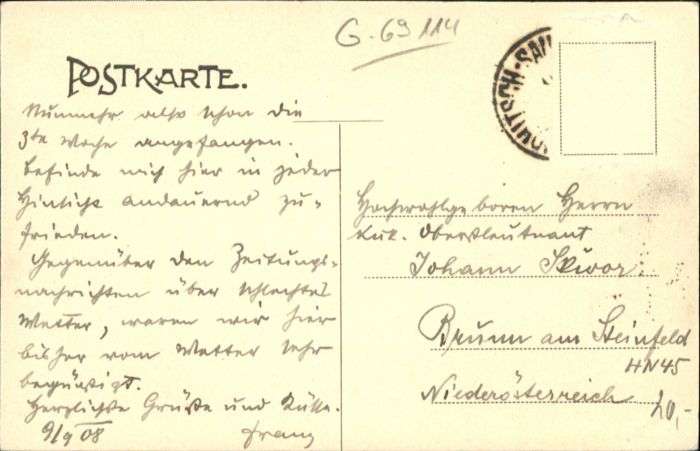 G-69114
POSTKARTE.
Nunmehr also schon die
3te Woche angefangen.
Befinde mich hier in jeder
Hinsicht andauernd zu-
frieden.
Gegenüber den Zeitungs-
nachrichten über schlechtes
Wetter, waren wir hier
bisher vom Wetter sehr
begünstigt.
Herzlichste Grüße und Küsse.
9/9 08 Franz
Hochwohlgeboren Herrn
k.u.k. Oberstleutnant
Johann Skwor
Brunn am Steinfeld
HN45
Niederösterreich
20,-